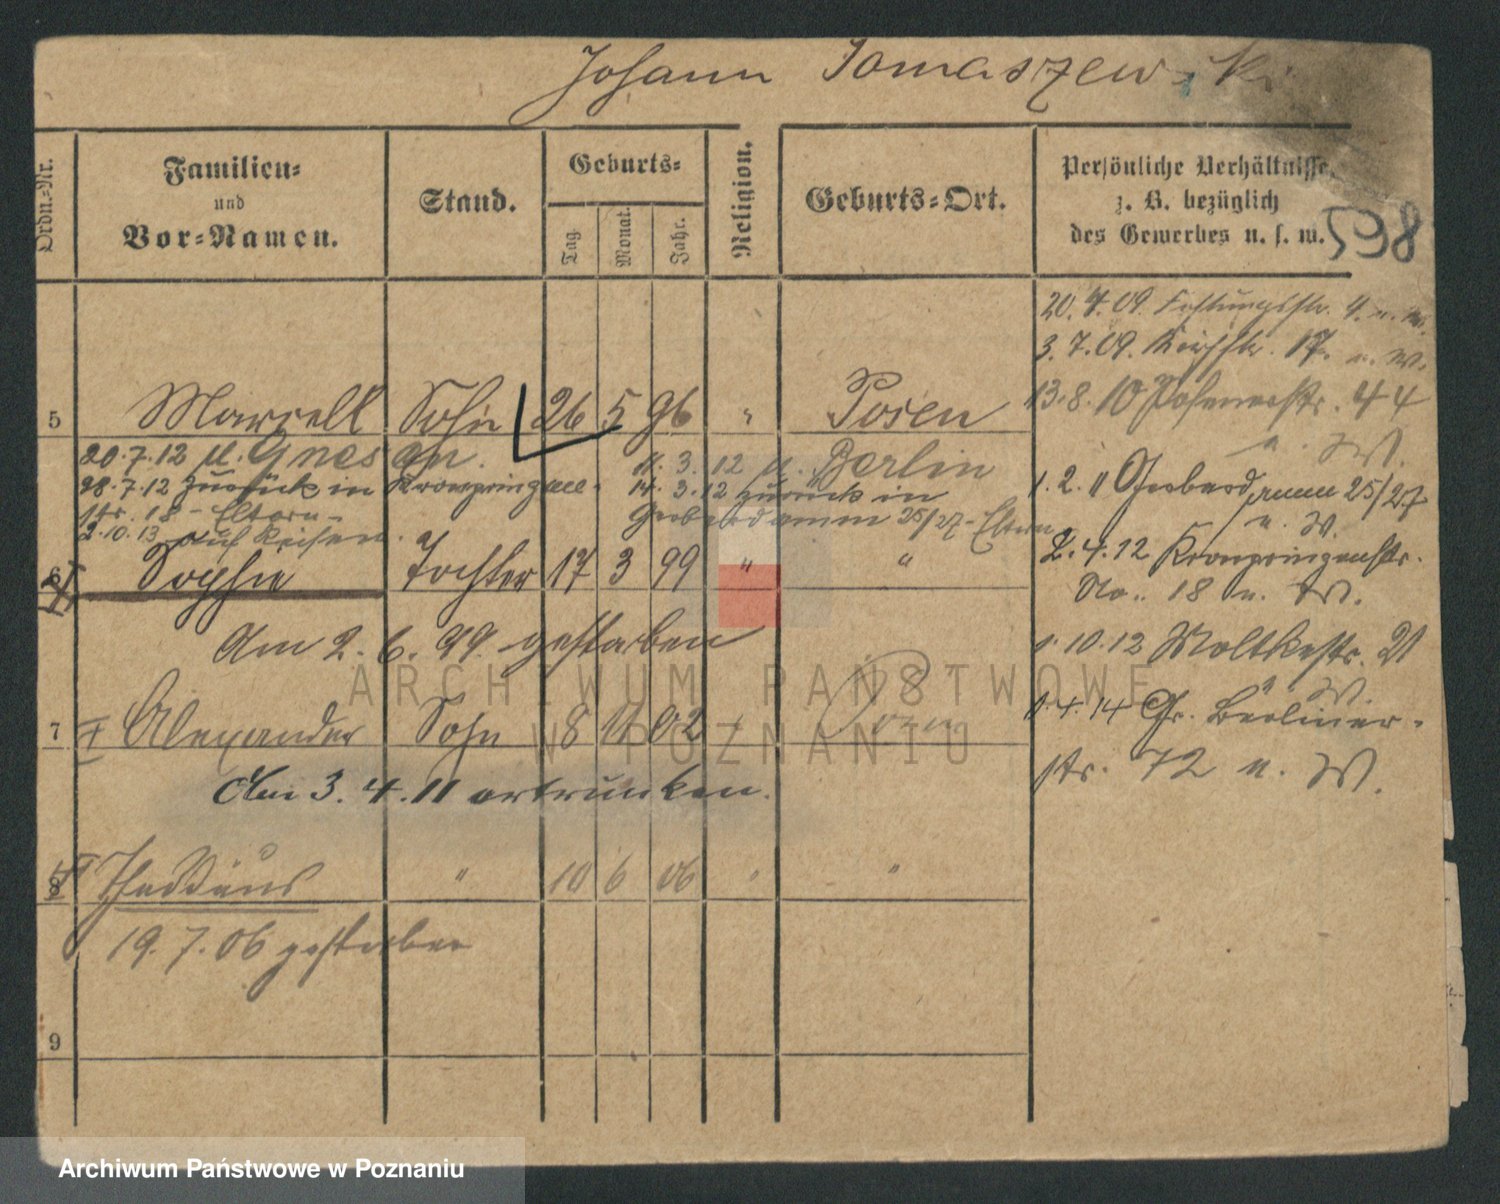 Johann Tomaszewski
Ordn.-Nr.
Familien-
und
Vor-Namen.
Stand.
Geburts-
Tag.
Monat.
Jahr.
Religion.
Geburts-Ort.
Persönliche Verhältnisse,
z. B. bezüglich
des Gewerbes u. s. w.
598
20. 4. 09. Festungsstr. 4. u. W.
3. 7. 09. Kirchstr. 17. u. W.
13. 8. 10 Posenerstr. 44
u. W.
5 Marcell Sohn 26 5 96 " Posen
20. 7. 12 n. Gnesen.
28. 7. 12 zurück in Kronprinzen-
str. 18 - Eltern -
2. 10. 13 auf Reisen.
11. 3. 12 n. Berlin
14. 3. 12 zurück in
25/27 - Eltern
1. 2. 11 25/27
u. W.
6 Sophie Tochter 17 3 99 " "
2. 4. 12 Kronprinzenstr.
No. 18 u. W.
Am 2. 6. 99 gestorben
1. 10. 12 Moltkestr. 21
u. W.
7 Alexander Sohn 8 11 02 " Posen
1. 4. 14 Gr. Berliner-
str. 72 u. W.
Am 3. 4. 11 ertrunken.
8 Thaddäus " 10 6 06 " "
19. 7. 06 gestorben
9
ARCHIWUM PAŃSTWOWE
W POZNANIU
Archiwum Państwowe w Poznaniu